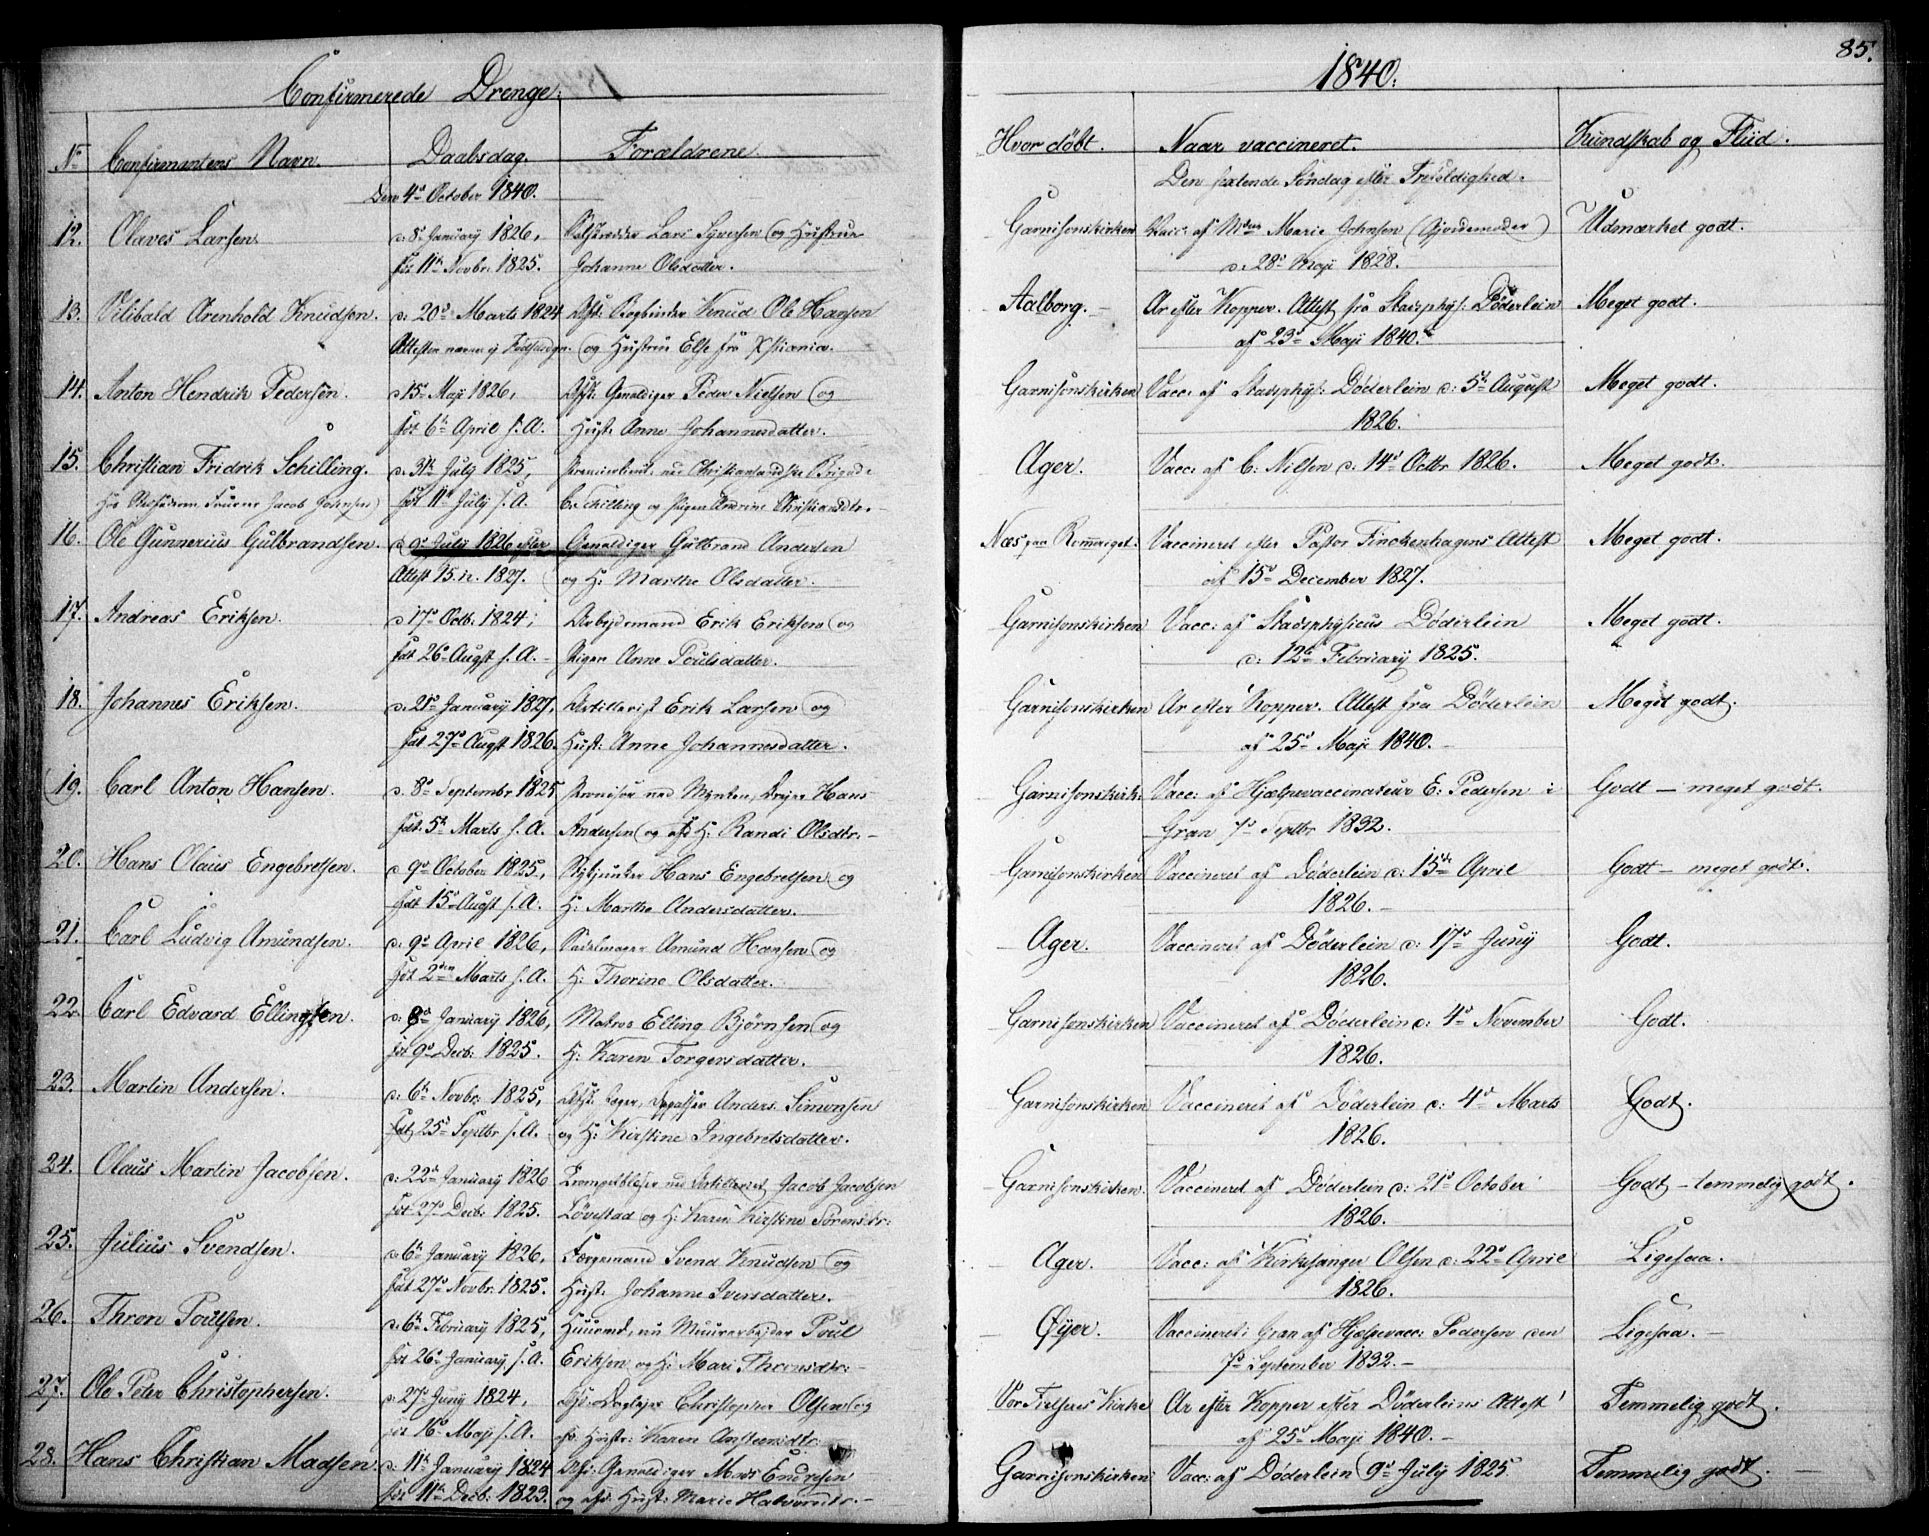 85.
Confirmerede Drenge.
1840.
No Confirmantens Navn. Daabsdag. Forældrene. Hvor døbt. Naar vaccineret. Kundskab og Fliid.
Den 4de October 1840. Den Søndag efter Trefoldighed.
12. Olaves Larsen d: 8de January 1826, Lars Syversen og Hustrue Garnisonskirken Vacc: af Marie Johnsen (Gjordemoder) Udmærket godt.
fdt 11te Novbr. 1825. Johanne Olsdatter. d: 28de Maji 1828.
13. Vilibald Arenhold Knudsen. d: 20de Marts 1824 Afsk: Bogbinder Knud Ole Hansen Aalborg. Ar efter Kopper. Attest fra Stadsphys: Døderlein Meget godt.
Attesten nævner ej Fødselsdgn. og Hustrue Else fra Xstiania. af 23de Maji 1840.
14. Anton Hendrik Pedersen. d 15de Maji 1826, Afsk: Gevaldiger Peder Nielsen og Garnisonskirken Vacc: af Stadsphys: Døderlein d: 5te August Meget godt.
fdt 6te April s. A. Hust: Anne Johannesdatter. 1826.
15. Christian Fridrik Schilling. d: 31te July 1825, Premierlieut. ved Christiansandske Brigade Ager. Vacc: af C: Nilsen d: 14de Octbr 1826. Meget godt.
Jacob Johnsen) fdt 11te July s. A. C. Schilling og Pigen Andrine Christiansdtr.
16. Ole Gunnerius Gulbrandsen. July 1826 efter Gevaldiger Gulbrand Andersen Næs paa Romeriget. Vaccineret efter Pastor Finckenhagens Attest Meget godt.
Attest 15. 12. 1827. og H: Marthe Olsdatter. af 15de December 1827.
17. Andreas Eriksen. d 17de Octb: 1824; Arbejdsmand Erik Eriksen og Garnisonskirken Vacc: af Stadsphysicus Døderlein Meget godt.
fdt 26de Augst s. A. Pigen Anne Poulsdatter. d: 12te February 1825.
18. Johannes Eriksen. d: 21de January 1827, Artillerist Erik Larsen og Garnisonskirken Ar efter Kopper. Attest fra Døderlein Meget godt.
fdt 27de Augst 1826. Hust: Anne Johannesdatter. af 25de Maji 1840.
19. Carl Anton Hansen. d. 8de Septembr 1825 ved Mynten, Drejer Hans Garnisonskirk: Vacc: af Hjælpevaccinateur E: Pedersen i Godt - meget godt.
fdt. 5te Marts s. A. Andersen og afd H: Randi Olsdtr. Gran 7de Septbr 1832.
20. Hans Olaus Engebretsen. d 9de October 1825, Hans Engebretsen og Garnisonskirken Vaccineret af Døderlein d: 15de April Godt - meget godt.
fdt 15de Augst s. A. H: Marthe Andersdatter. 1826.
21. Carl Ludvig Amundsen. d: 9de April 1826, Sadelmager Amund Hansen og Ager. Vaccineret af Døderlein d: 17de Juny Godt.
fdt 2den Marts s. A. H: Thorine Olsdatter. 1826.
22. Carl Edvard Ellingsen. d: 8de January 1826, Matros Elling Bjørnsen og Garnisonskirken Vaccineret af Døderlein d: 4de November Godt.
fdt 9de Decb: 1825. H: Karen Torgersdatter. 1826.
23. Martin Andersen. d: 6te Novbr: 1825, Anders Simonsen Garnisonskirken Vaccineret af Døderlein d: 4de Marts Godt.
Fdt 25de Septbr s. A. og H: Kirstine Ingebretsdatter. 1826.
24. Olaus Martin Jacobsen. d: 22de January 1826 Trompetblæser ved Artilleriet Jacob Jacobsen Garnisonskirken. Vaccineret af Døderlein d: 21de October Godt - temmelig godt.
fdt 27de Decb: 1825. Løvestad og H: Karen Kirstine Sørensdtr: 1826.
25. Julius Svendsen. d: 6te January 1826, Færgemand Svend Knudsen og Ager. Vacc: af Kirkesanger Olsen d: 22de April Ligesaa.
fdt 27de Novbr: 1825. Hust: Johanne Iversdatter. 1826.
26. Thron Poulsen. d: 6te February 1825, Huusmd, nu Muurarbejder Poul Øyer. Vaccineret i Gran af Hjelpevacc: Pedersen den Ligesaa.
fdt 26de January s. A. Eriksen og H: Mari Thronsdtr: 7de September 1832.
27. Ole Peter Christophersen. d: 27de Juny 1824, Christopher Olsen og Vor Frelseres Kirke Ar efter Kopper efter Døderleins Attest Temmelig godt.
fdt 16de Maji s. A. afd. Hustr: Karen af 25de Maji 1840.
28. Hans Christian Madsen. d: 11te January 1824 Afsk: Gevaldiger Mads Endresen Garnisonskirken: Vacc: af Døderlein 9de July 1825 Temmelig godt.
fdt 11te Decb: 1823. og afd. Hust: Marie Halvorsdtr.